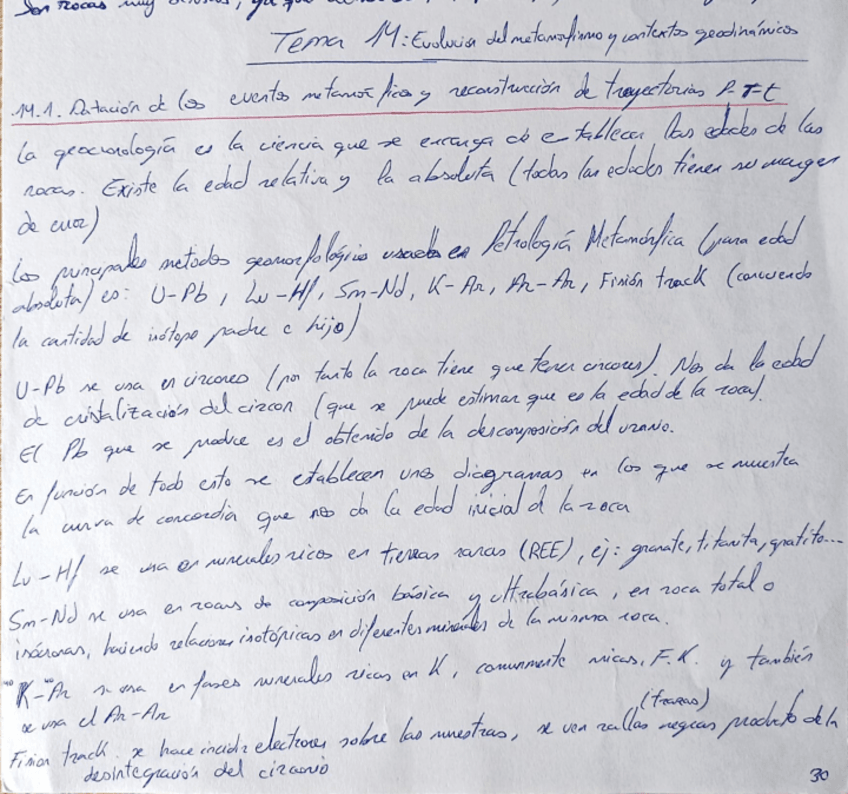 Son rocas muy
Tema 14: Evolución del metamorfismo y contextos geodinámicos
14.1. Datación de los eventos metamórficos y reconstrucción de trayectorias P-T-t
La geocronología es la ciencia que se encarga de establecer las edades de las
rocas. Existe la edad relativa y la absoluta (todas las edades tienen su margen
de error)
Los principales metodos geomorfológicos usados en Petrología Metamórfica (para edad
absoluta) es: U-Pb, Lu-Hf, Sm-Nd, K-Ar, Ar-Ar, Fisión track (conociendo
la cantidad de isótopo padre e hijo)
U-Pb se usa en circones (por tanto la roca tiene que tener circones). Nos da la edad
de cristalización del circon (que se puede estimar que es la edad de la roca).
El Pb que se produce es el obtenido de la descomposición del uranio.
En función de todo esto se establecen unos diagramas en los que se muestra
la curva de concordia que nos da la edad inicial d la roca
Lu-Hf se usa en minerales ricos en tierras raras (REE), ej: granate, titanita,
Sm-Nd se usa en rocas de composición básica y ultrabásica, en roca total o
isócronas, haciendo relaciones isotópicas en diferentes minerales de la misma roca.
K-Ar se usa en fases minerales ricas en K, comunmente micas, F.K. y también
se usa el Ar-Ar
(trazas)
Fision track. se hace incidir electrones sobre las muestras, se ven rallas negras producto de la
desintegración del circonio
30